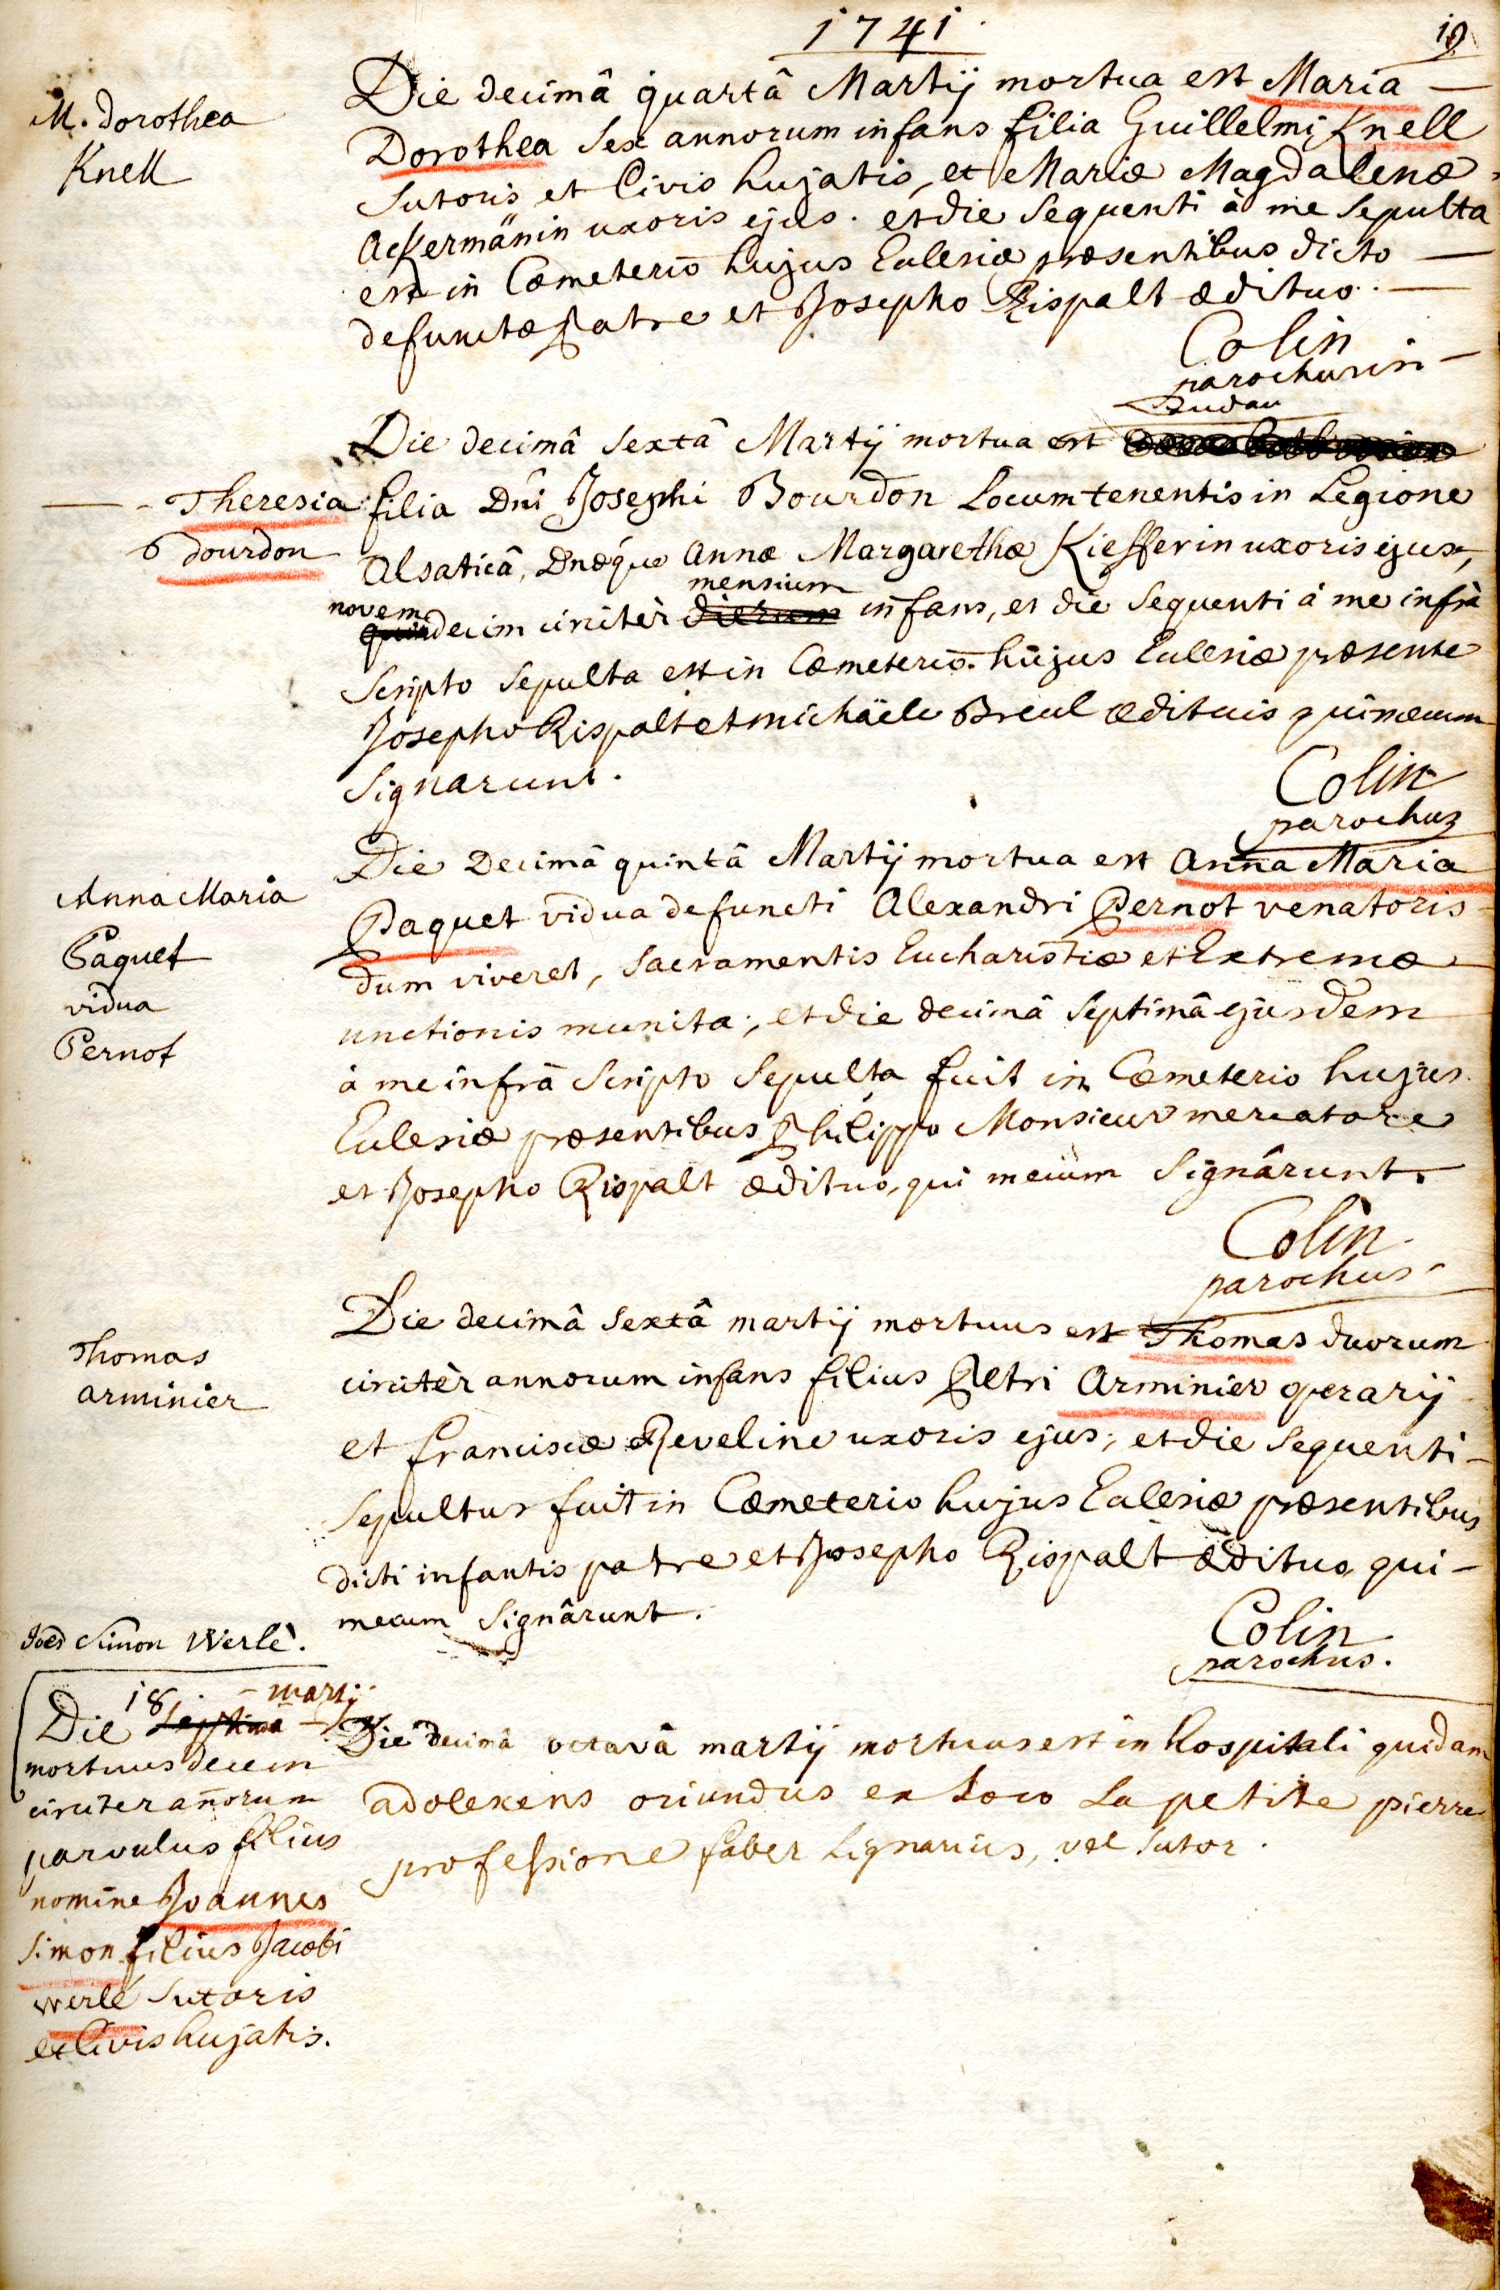 1741.
19
M. Dorothea
Knell
Die decimâ quartâ Martij mortua est Maria —
Dorothea sex annorum infans filia Guillelmi Knell
sutoris et Civis hujatis, et Mariæ Magdalenæ
Ackermänin uxoris ejus. et die sequenti à me sepulta
est in Cœmeterio hujus Ecclesiæ præsentibus dicto —
defunctæ Patre et Josepho Rispalt ædituo. —
Colin
parochus in
Budan
Theresia
Bourdon
Die decimâ sextâ Martij mortua est
filia Dni Josephi Bourdon Locumtenentis in Legione
Alsaticâ, Dnæque Annæ Margarethæ Kiefferin uxoris ejus,
novem mensium
decim circitèr dierum infans, et die sequenti à me infrà
scripto sepulta est in Cœmeterio hujus Ecclesiæ præsente
Josepho Rispalt et michäele Breul ædituis qui mecum
signarunt.
Colin
parochus
Anna Maria
Paquet
vidua
Pernot
Die Decimâ quintâ Martij mortua est Anna Maria
Paquet vidua defuncti Alexandri Pernot venatoris
dum viveret, sacramentis Eucharistiæ et Extremæ
unctionis munita; et die decimâ septimâ ejusdem
à me infrà scripto sepulta fuit in Cœmeterio hujus
Ecclesiæ præsentibus Philippo Monsieur mercatore
et Josepho Rispalt ædituo, qui mecum signârunt.
Colin
parochus
Thomas
arminier
Die decimâ sextâ martij mortuus est Thomas duorum
circitèr annorum infans filius Petri Arminier operarij
et franciscæ Reveline uxoris ejus; et die sequenti —
sepultus fuit in Cœmeterio hujus Ecclesiæ præsentibus
dicti infantis patre et Josepho Rispalt ædituo, qui —
mecum signârunt.
Colin
parochus.
Joes Simon Werlé.
Die 18 septima martij
mortuus decem
circiter anorum
parvulus filius
nomine Joannes
Simon filius Jacobi
werlé sutoris
et Civis hujatis.
Die decimâ octavâ martij mortuus est in hospitali quidam
adolexens oriundus ex Loco La petite pierre
professione faber Lignarius, vel sutor.